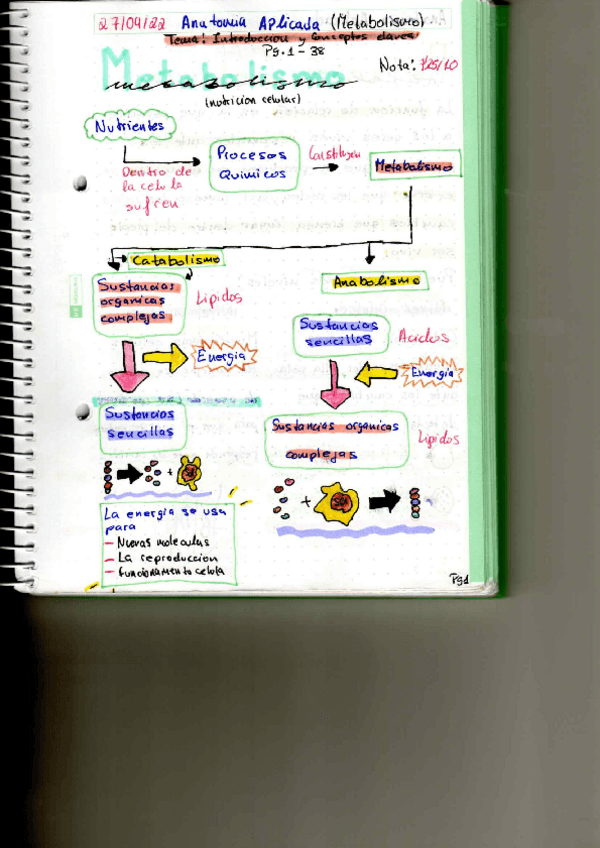 27/04/22 Anatomia Aplicada (Metabolismo)
Tema: Introduccion y Conceptos claves
Pg. 1 - 38
Nota:
Metabolismo
metabolismo
(nutricion celular)
Nutrientes
Dentro de
la celula
sufren
Procesos
Quimicos
Constituyen
Metabolismo
Catabolismo
Sustancias
organicas
complejas
Lipidos
Energia
Sustancias
sencillas
Anabolismo
Sustancias
sencillas
Acidos
Energia
Sustancias organicas
complejas
Lipidos
+
+
La energia se usa
para
- Nuevas moleculas
- La reproduccion
- Funcionamento celula
Pg1